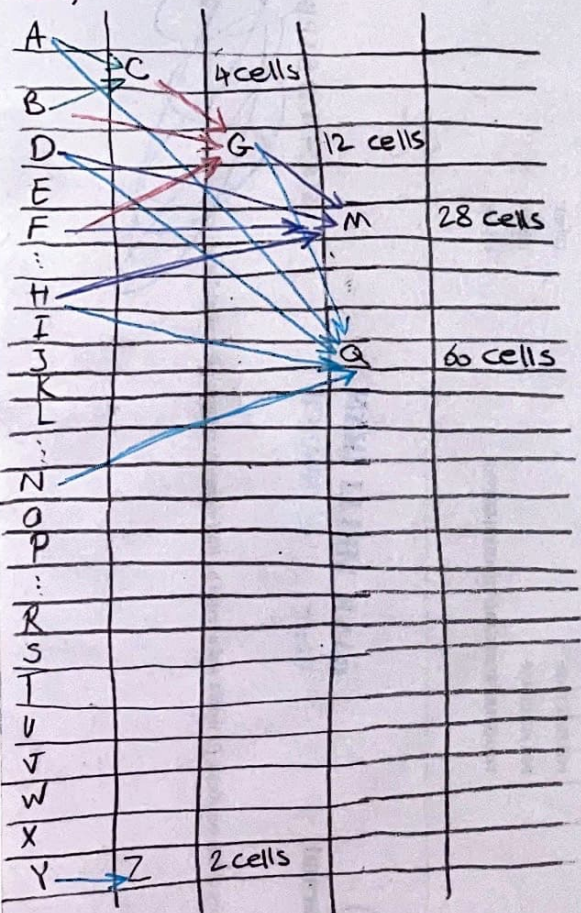 A
C 4 cells
B
D G 12 cells
E
F M 28 cells
⋮
H
I
J Q 60 cells
K
L
⋮
N
O
P
⋮
R
S
T
U
V
W
X
Y Z 2 cells